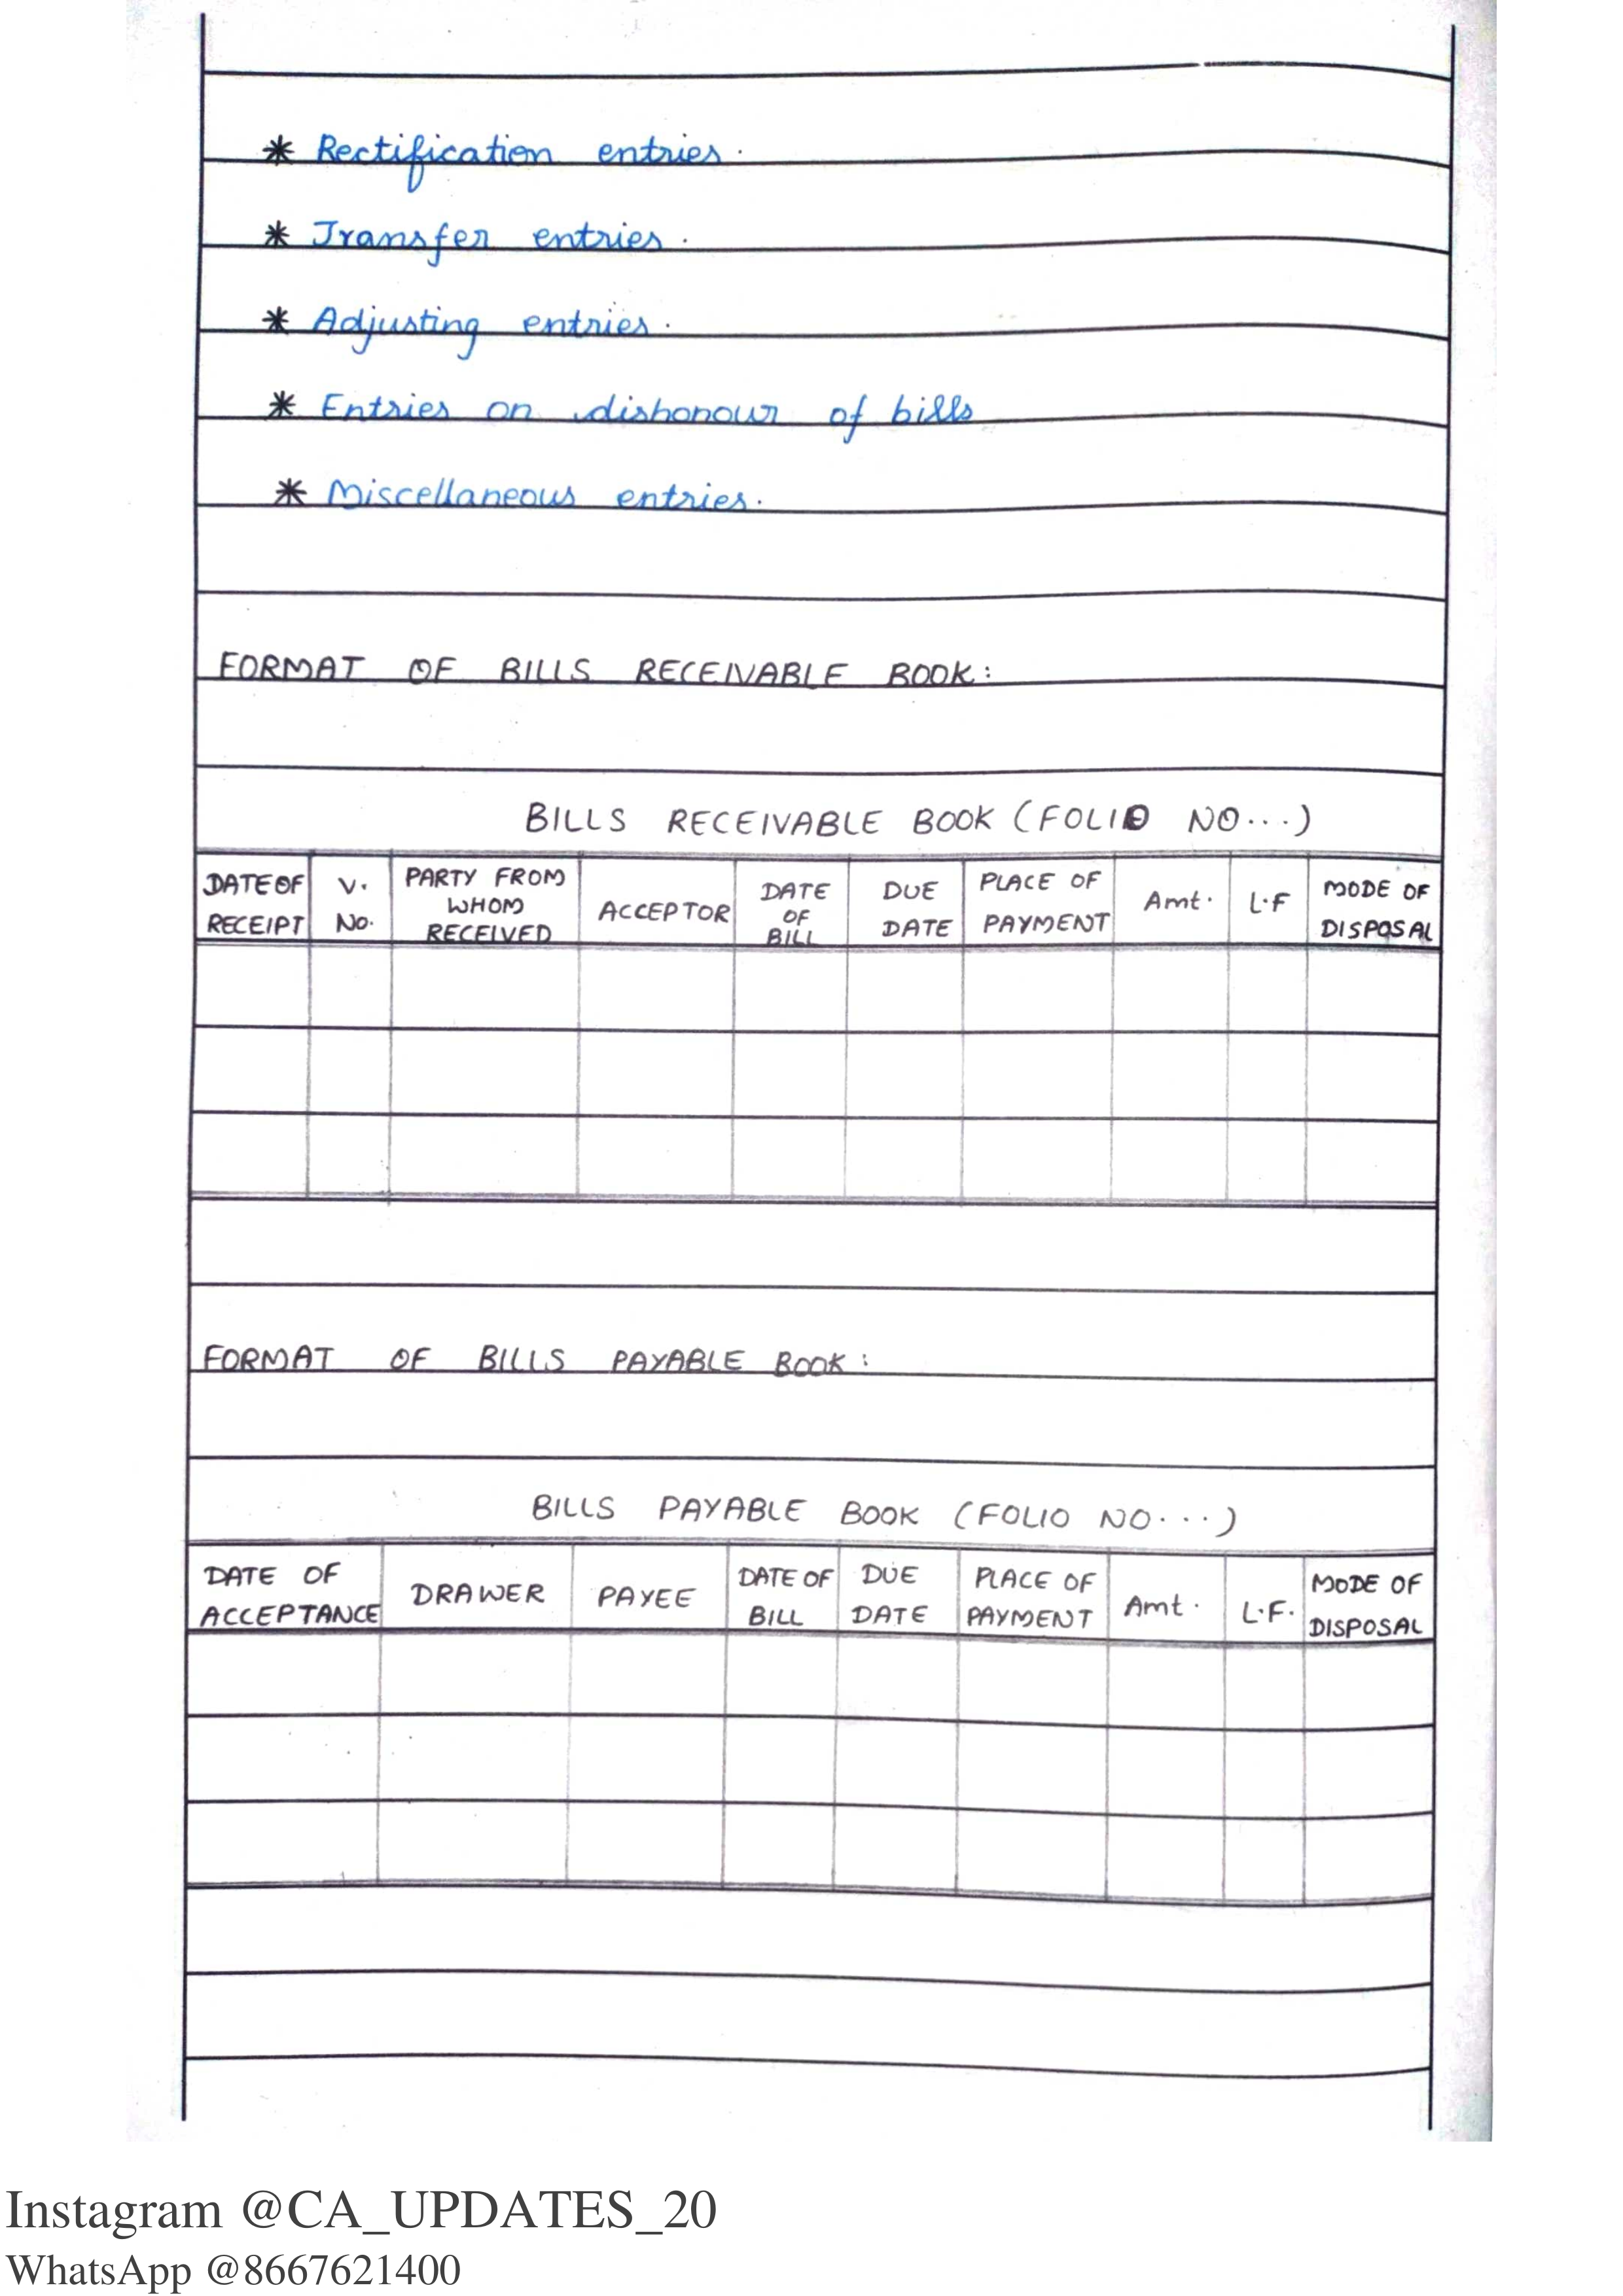 * Rectification entries.
* Transfer entries.
* Adjusting entries.
* Entries on dishonour of bills
* Miscellaneous entries.
FORMAT OF BILLS RECEIVABLE BOOK:
BILLS RECEIVABLE BOOK (FOLIO NO...)
DATE OF RECEIPT
V. No.
PARTY FROM WHOM RECEIVED
ACCEPTOR
DATE OF BILL
DUE DATE
PLACE OF PAYMENT
Amt.
L.F
MODE OF DISPOSAL
FORMAT OF BILLS PAYABLE BOOK:
BILLS PAYABLE BOOK (FOLIO NO...)
DATE OF ACCEPTANCE
DRAWER
PAYEE
DATE OF BILL
DUE DATE
PLACE OF PAYMENT
Amt.
L.F.
MODE OF DISPOSAL
Instagram @CA_UPDATES_20
WhatsApp @8667621400